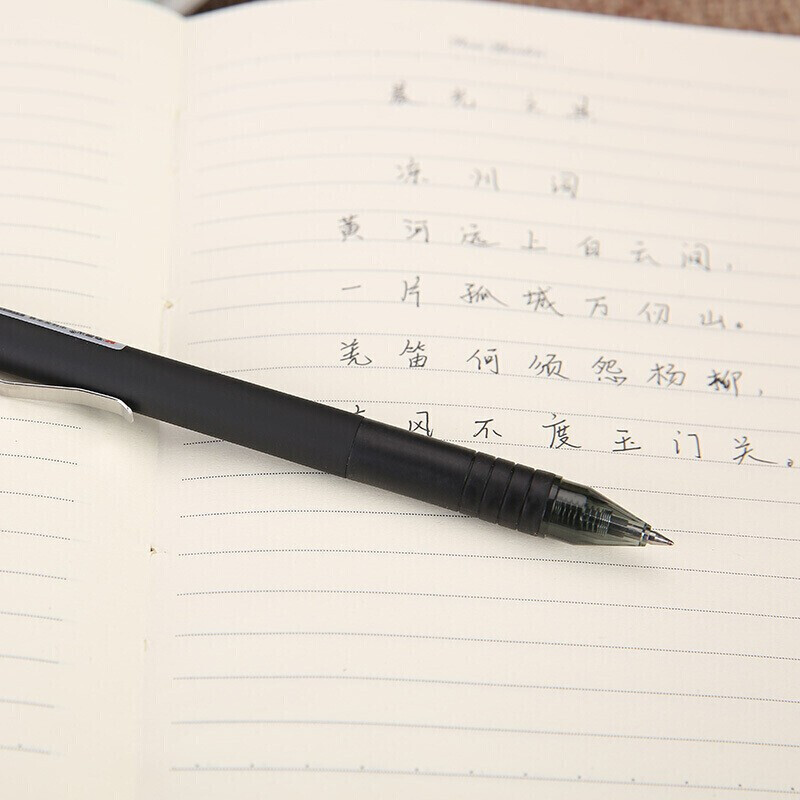 凉州词
黄河远上白云间，
一片孤城万仞山。
羌笛何须怨杨柳，
风不度玉门关。